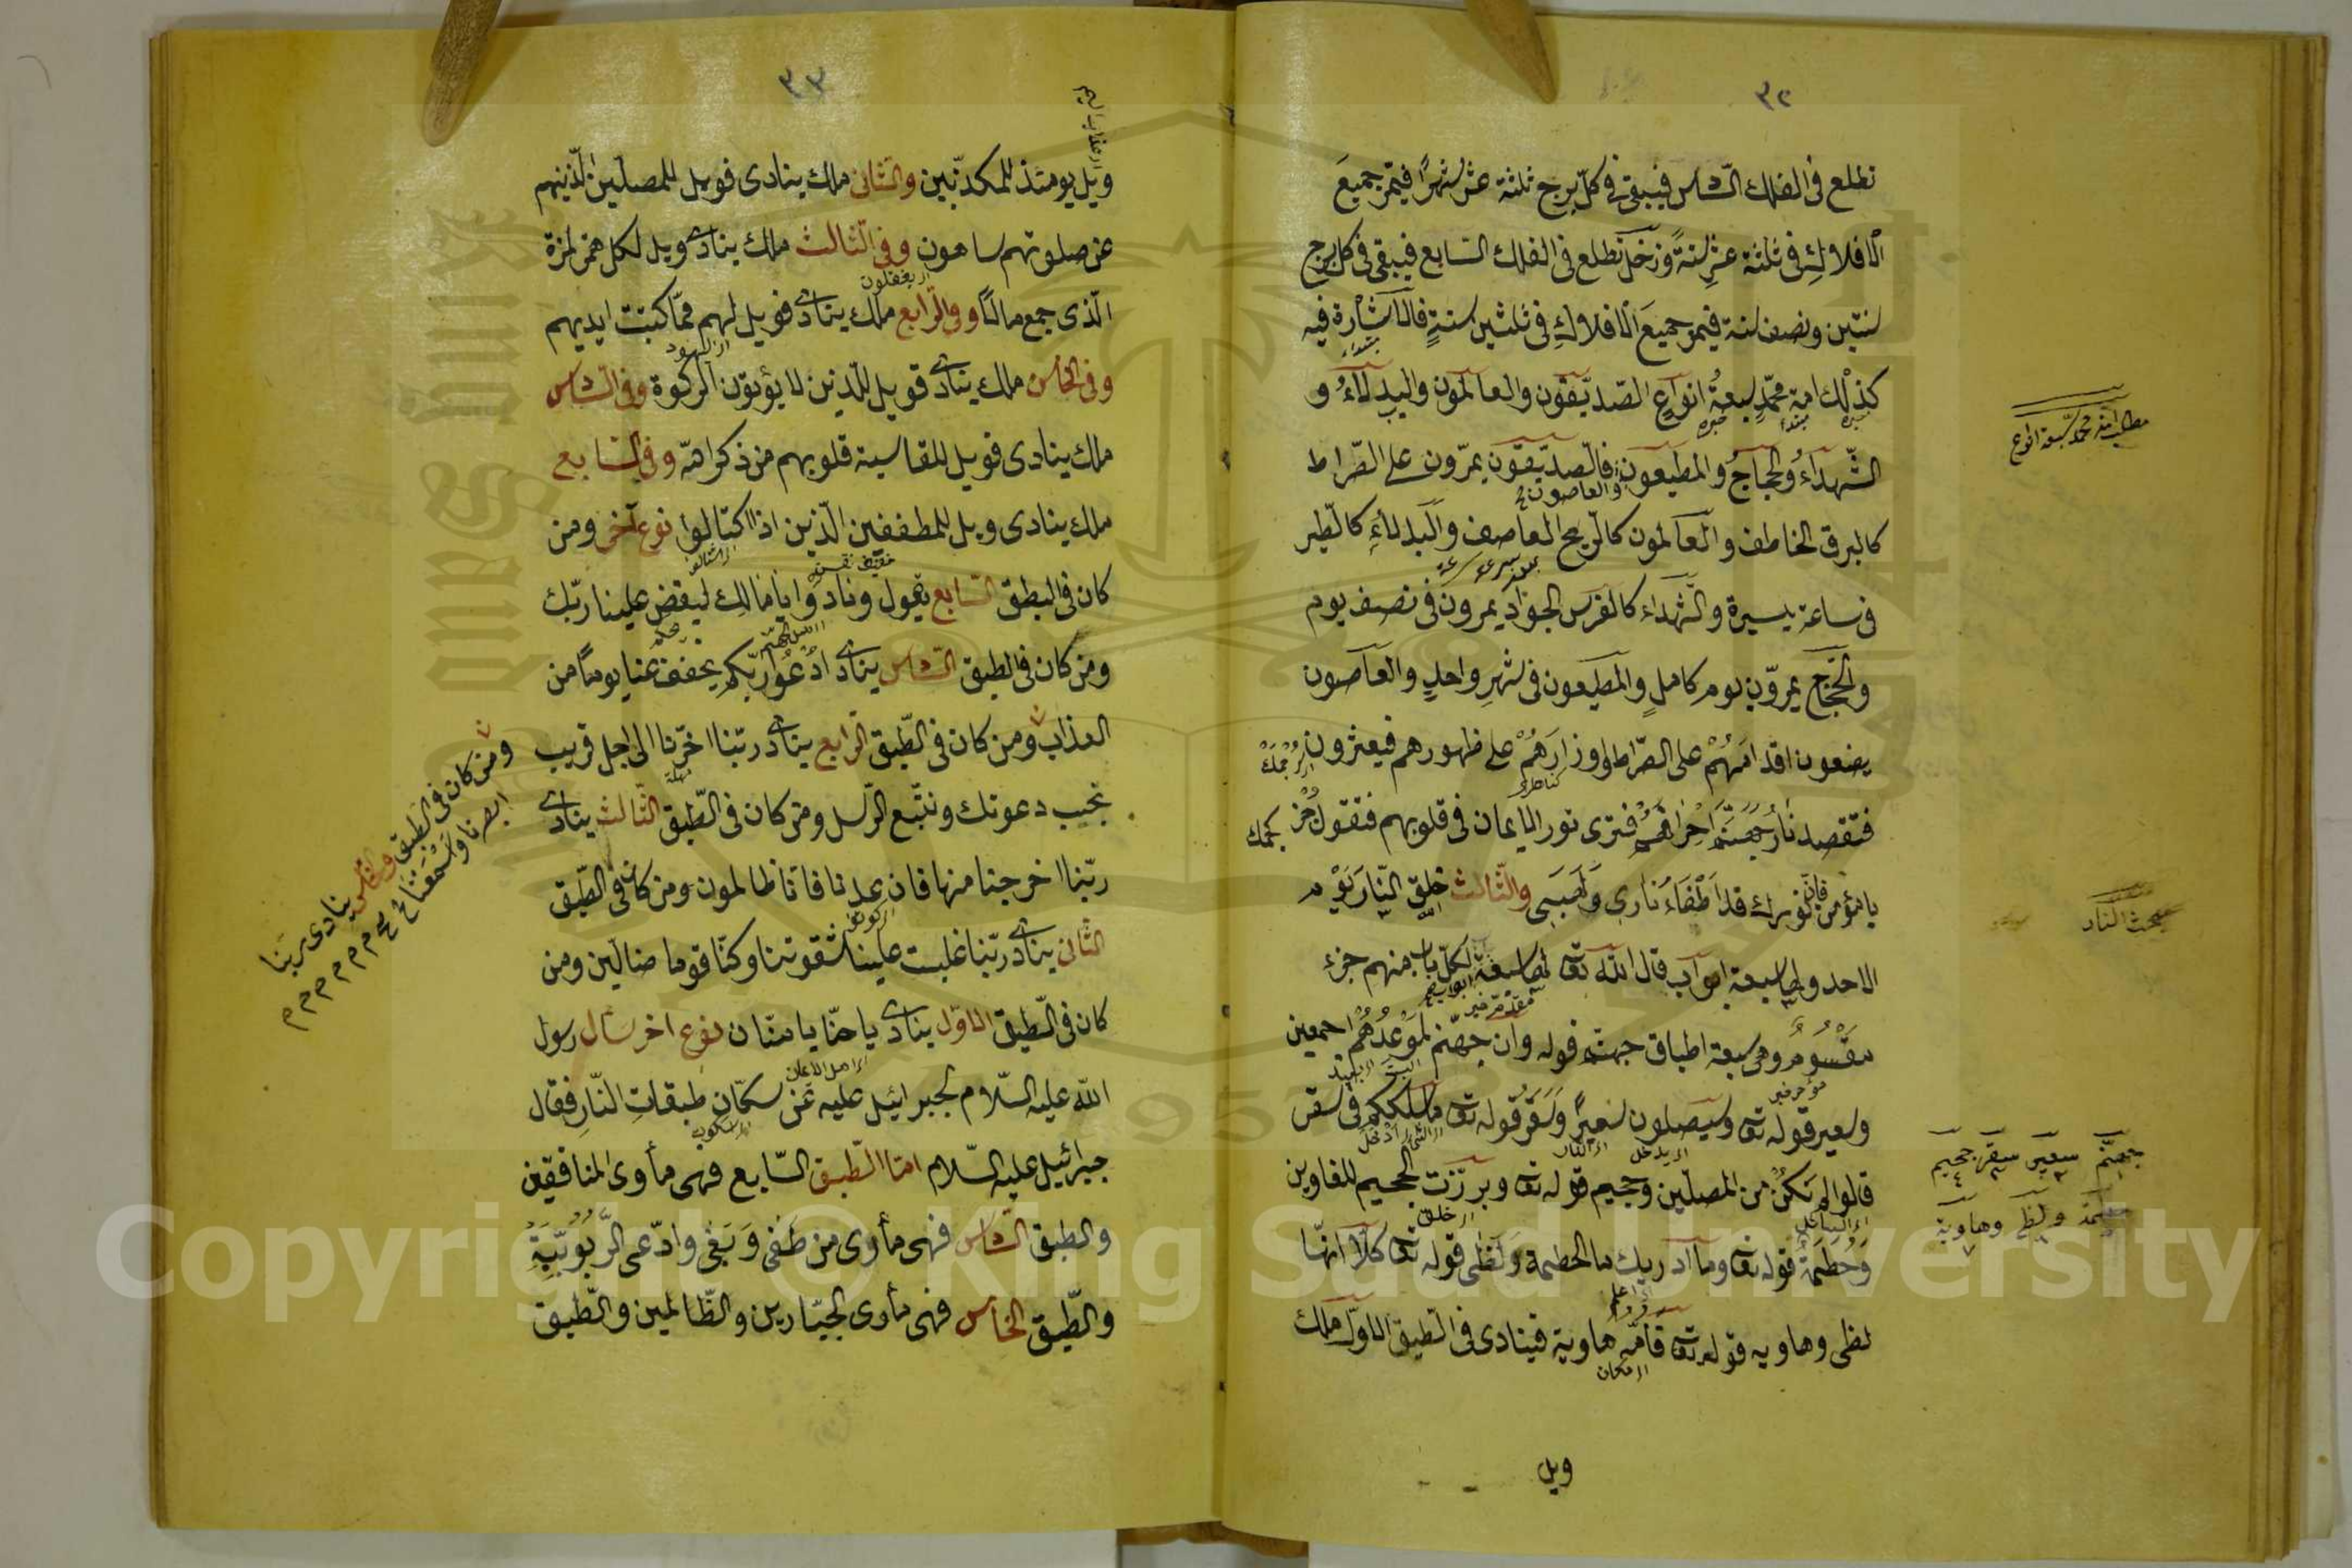 ٣٢
تطلع فى الفلك السّادس فيبقى فى كلّ برج ثلثة عشر شهرًا فيمرّ جميعَ
الافلاكِ فى ثلثة عشر سنةً وزحل تطلع فى الفلك السّابع فيبقى فى كل برج
سنتين ونصف سنة فيمرّ جميعَ الافلاكِ فى ثلثين سنةٍ فالاشارة فيه
كذلك امة محمّدٍ سبعةُ انواعٍ الصّدّيقون والعالمون والبدلاءُ و
الشّهداءُ والحجّاجُ والمطيعون والعاصون فالصّدّيقون يمرّون على الصّراط
كالبرق الخاطف والعالمون كالرّيح العاصف والبدلاءِ كالطّير
فى ساعة يسيرة والشّهداء كالفرس الجواد يمرون فى نصف يوم
والحجّاج يمرّون يوم كاملٍ والمطيعون فى شهرٍ واحدٍ والعاصون
يضعون اقدامَهُمْ على الصّراط واوزارَهُمْ على ظهورهم فيعثرون
فتقصد نارُ جهنّم احراقهم فترى نور الايمان فى قلوبهم فتقول جُزْ
يا مؤمن فانّ نورك قد اَطْفَاءَ نارى ولَهَبى والثّالث خلق النّار يوم
الاحد ولها سبعة ابواب قال اللّه تعـ لها سبعة ابواب لكلّ باب منهم جزء
مقْسُومٌ وهى سبعة اطباق جهنّم قوله وانّ جهنّم لموْعدُهُم اجمعين
وسعير قوله تعـ وسيصلون سعيرًا وسقر قوله تعـ ما سلككم فى سقر
قالوا لم نكُ من المصلّين وجحيم قوله تعـ وبرّزت الجحيم للغاوين
وحُطَمة قوله تعـ وما ادريك ما الحطمة ولظى قوله تعـ كلّا انّها
لظى وهاويه قوله تعـ فامّه هاوية فينادى فى الطّبق الاوّل ملك
ويل
مطلب امة محمّد سبعة انواع
مبحث النار
جهنّم سعير سقر جحيم
حطمة ولظى وهاوية
٣٣
ويل يومئذ للمكذّبين والثانى ملك ينادى فويل للمصلّين الّذينهم
عن صلوتهم ساهون وفى الثّالث ملك ينادى ويل لكل همزة لمزة
الّذى جمع مالًا وفى الرّابع ملك ينادى فويل لهم ممّا كتبت ايديهم
وفى الخامس ملك ينادى فويل للّذين لا يؤتون الزكوة وفى السّادس
ملك ينادى فويل للقاسية قلوبهم من ذكر اللّه وفى السّابع
ملك ينادى ويل للمطففين الّذين اذا اكتالوا نوع آخر ومن
كان فى الطبق السّابع يقول ونادوا يا مالك ليقض علينا ربّك
ومن كان فى الطبق السّادس ينادى ادْعُوا ربّكم يخفف عنا يومًا من
العذاب ومن كان فى الطّبق الرّابع ينادى ربّنا اخّرنا الى اجل قريب
نجيب دعوتك ونتّبع الرّسل ومن كان فى الطّبق الثّالث ينادى
ربّنا اخرجنا منها فان عدنا فانا ظالمون ومن كان فى الطّبق
الثّانى ينادى ربّنا غلبت علينا شقوتنا وكنّا قوما ضالّين ومن
كان فى الطّبق الاوّل ينادى يا حنّان يا منّان نوع اخر سأل رسول
اللّه عليه السّلام لجبرائيل عليه عَن سكّان طبقاتِ النّارِ فقال
جبرائيل عليه السّلام امّا الطّبق السّابع فهى مأوى المنافقين
والطبق السّادس فهى مأوى من طغى وبَغى وادّعى الرّبُوبيّةِ
والطّبق الخامس فهى مأوى الجبّارين والظّالمين والطّبق
ومن كان فى الطّبق الخامس ينادى ربّنا
ابصرنا وسمعنا
Copyright © King Saud University